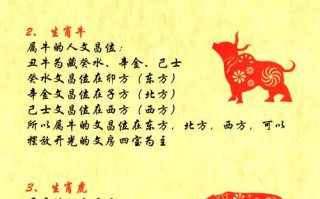 2、生肖牛
属牛的人文昌位：
丑牛为藏癸水、辛金、己土
癸水文昌位在卯方（东方）
辛金文昌位在子方（北方）
己土文昌位在酉方（西方）
所以属牛的文昌位在东方，北方，西方，可以
摆放开光的文房四宝为主
3、生肖虎